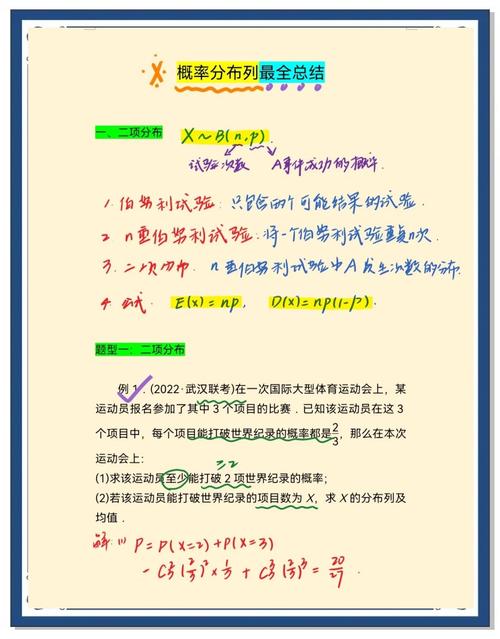 概率分布列最全总结
一、二项分布 X~B(n,p).
试验次数 A事件成功的概率.
1. 伯努利试验: 只包含两个可能结果的试验.
2. n重伯努利试验: 将一个伯努利试验重复n次.
3. 二项分布. n重伯努利试验中A发生次数的分布
4. 公式. E(x)=np, D(x)=np(1-p).
题型一：二项分布
例 1．(2022·武汉联考)在一次国际大型体育运动会上，某
运动员报名参加了其中 3 个项目的比赛．已知该运动员在这 3
个项目中，每个项目能打破世界纪录的概率都是2/3，那么在本次
运动会上：
≥2
(1)求该运动员至少能打破 2 项世界纪录的概率；
(2)若该运动员能打破世界纪录的项目数为 X，求 X 的分布列及
均值．
解: (1) P=P(X=2)+P(X=3)
=C₃²(2/3)²×1/3+C₃³(2/3)³=20/27.